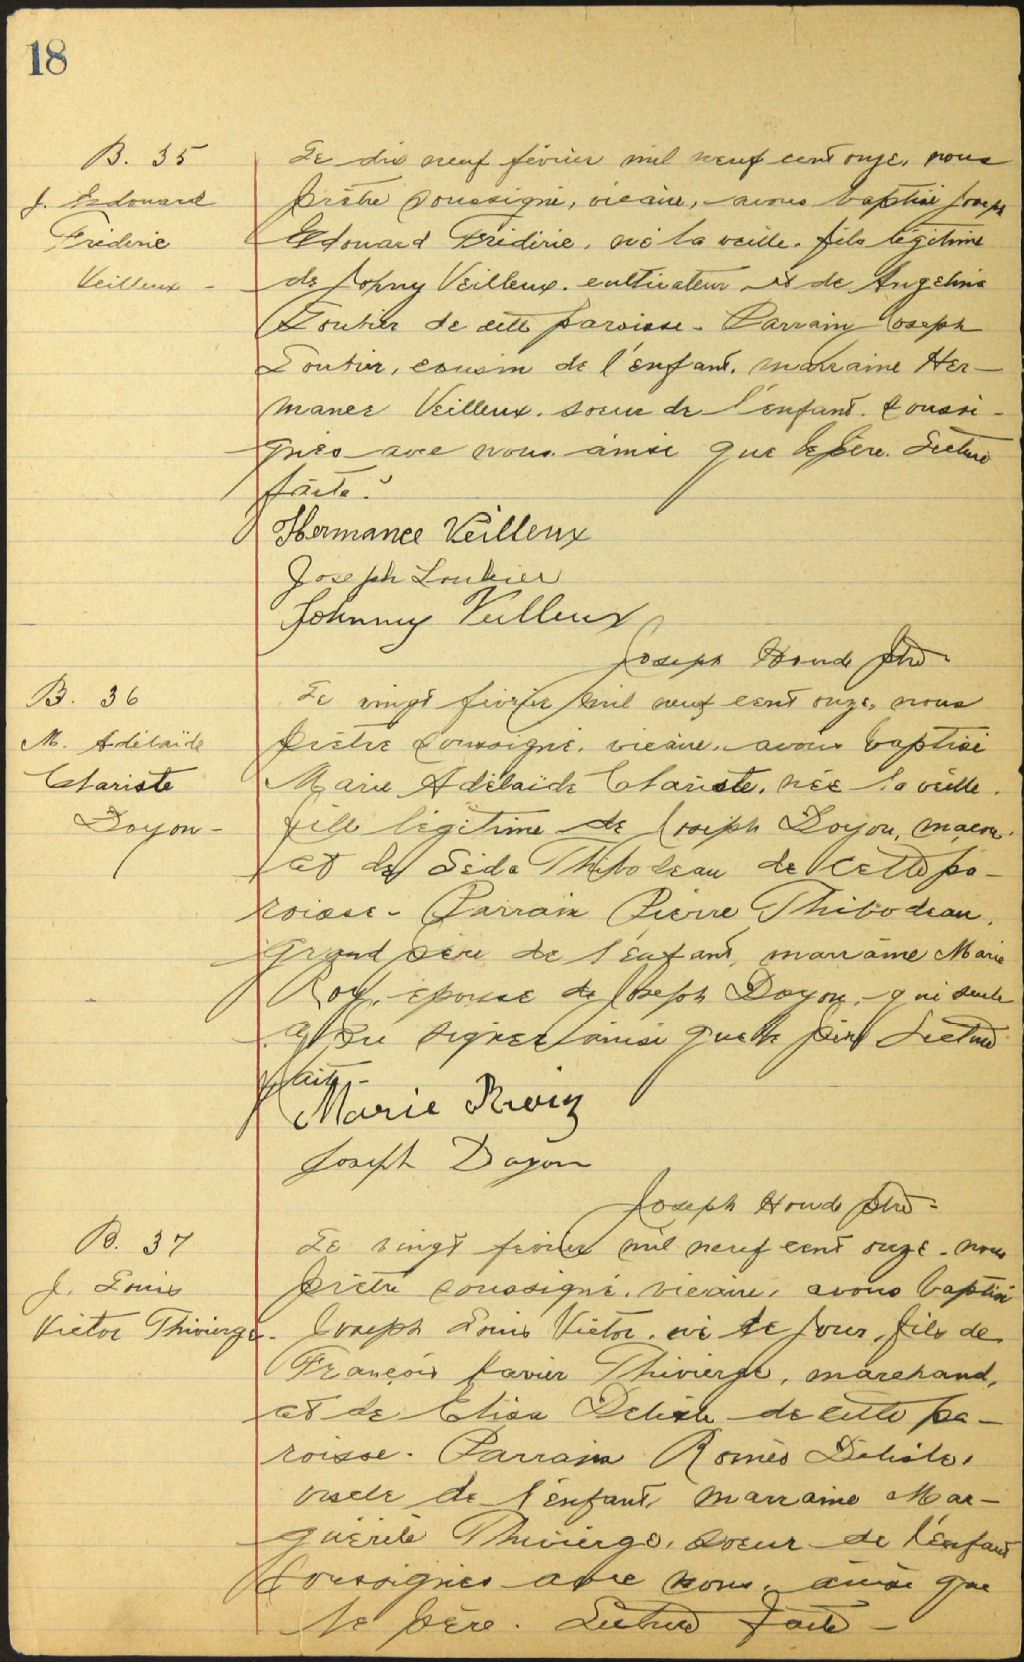 18
B. 35
J. Edouard
Fréderic
Veilleux -
Le dix neuf février mil neuf cent onze, nous
prêtre soussigné, vicaire, avons baptisé Joseph
Edouard Fréderic, né la veille, fils légitime
de Johny Veilleux, cultivateur et de Angelina
Loubier de cette paroisse - Parrain Joseph
Loubier, cousin de l'enfant, marraine Her-
mance Veilleux, soeur de l'enfant, soussi-
gnés avec nous ainsi que le père. Lecture
faite.
Hermance Veilleux
Joseph Loubier
Johnny Veilleux
Joseph Houde Ptre -
B. 36
M. Adélaïde
Doyon -
Le vingt février mil neuf cent onze, nous
prêtre soussigné, vicaire, avons baptisé
Marie Adélaïde née la veille,
fille légitime de Joseph Doyon, maçon
et de Thibodeau de cette pa-
roisse - Parrain Pierre Thibodeau,
grand père de l'enfant, marraine Marie
Roy, épouse de Joseph Doyon, qui seule
a su signer ainsi que le père Lecture
faite -
Marie
Joseph Doyon
Joseph Houde Ptre -
B. 37
J. Louis
Victor Thivierge -
Le vingt février mil neuf cent onze, nous
prêtre soussigné, vicaire, avons baptisé
Joseph Louis Victor, né le jour, fils de
François Xavier Thivierge, marchand,
et de Elisa Delisle de cette pa-
roisse - Parrain Roméo Délisle,
oncle de l'enfant, marraine Mar-
guérite Thivierge, soeur de l'enfant
soussignés avec nous, ainsi que
le père. Lecture faite -